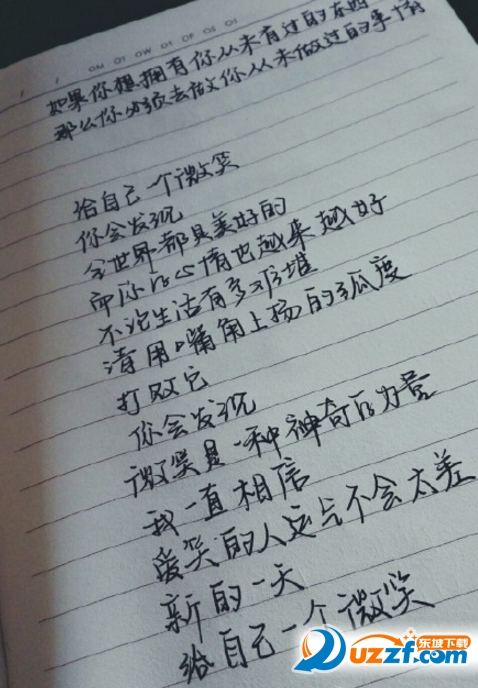 如果你想拥有你从未有过的东西
那么你必须去做你从未做过的事情
给自己一个微笑
你会发现
全世界都是美好的
而你的心情也越来越好
不论生活有多难堪
请用嘴角上扬的弧度
打败它
你会发现
微笑是一种神奇的力量
我一直相信
爱笑的人运气不会太差
新的一天
给自己一个微笑
东坡下载
uzzf.com